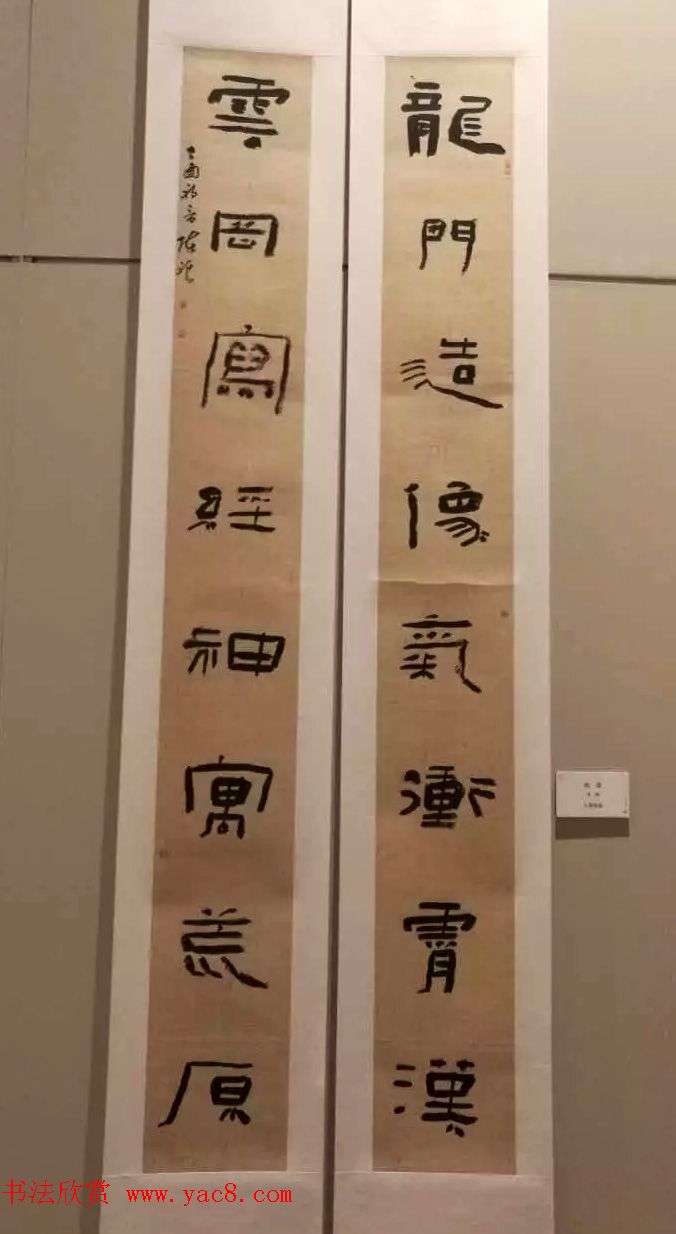 龍門造像氣衝霄漢
雲岡寫經神寓荒原
书法欣赏 www.yac8.com